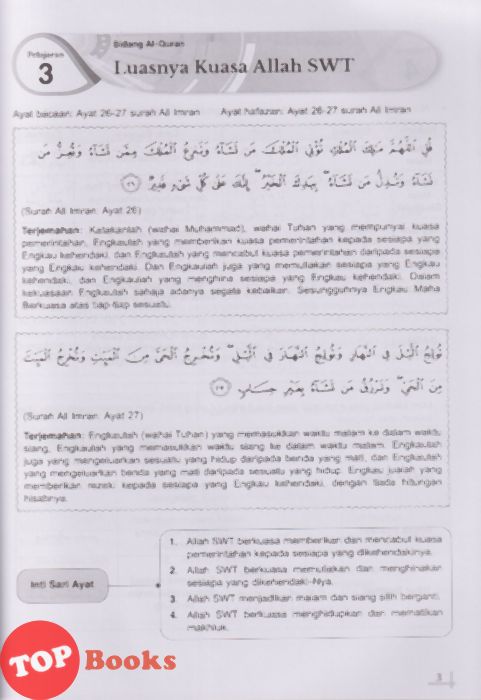 Pelajaran
3
Bidang Al-Quran
Luasnya Kuasa Allah SWT
Ayat bacaan: Ayat 26-27 surah Ali Imran Ayat hafazan: Ayat 26-27 surah Ali Imran
قُلِ اللَّهُمَّ مَالِكَ الْمُلْكِ تُؤْتِي الْمُلْكَ مَن تَشَاءُ وَتَنزِعُ الْمُلْكَ مِمَّن تَشَاءُ وَتُعِزُّ مَن
تَشَاءُ وَتُذِلُّ مَن تَشَاءُ بِيَدِكَ الْخَيْرُ إِنَّكَ عَلَىٰ كُلِّ شَيْءٍ قَدِيرٌ ٢٦
(Surah Ali Imran: Ayat 26)
Terjemahan: Katakanlah (wahai Muhammad), wahai Tuhan yang mempunyai kuasa
pemerintahan, Engkaulah yang memberikan kuasa pemerintahan kepada sesiapa yang
Engkau kehendaki, dan Engkaulah yang mencabut kuasa pemerintahan daripada sesiapa
yang Engkau kehendaki. Dan Engkaulah juga yang memuliakan sesiapa yang Engkau
kehendaki, dan Engkaulah yang menghina sesiapa yang Engkau kehendaki. Dalam
kekuasaan Engkaulah sahaja adanya segala kebaikan. Sesungguhnya Engkau Maha
Berkuasa atas tiap-tiap sesuatu.
تُولِجُ اللَّيْلَ فِي النَّهَارِ وَتُولِجُ النَّهَارَ فِي اللَّيْلِ وَتُخْرِجُ الْحَيَّ مِنَ الْمَيِّتِ وَتُخْرِجُ الْمَيِّتَ
مِنَ الْحَيِّ وَتَرْزُقُ مَن تَشَاءُ بِغَيْرِ حِسَابٍ ٢٧
(Surah Ali Imran: Ayat 27)
Terjemahan: Engkaulah (wahai Tuhan) yang memasukkan waktu malam ke dalam waktu
siang, Engkaulah yang memasukkan waktu siang ke dalam waktu malam. Engkaulah
juga yang mengeluarkan sesuatu yang hidup daripada benda yang mati, dan Engkaulah
yang mengeluarkan benda yang mati daripada sesuatu yang hidup. Engkau jualah yang
memberikan rezeki kepada sesiapa yang Engkau kehendaki, dengan tiada hitungan
hisabnya.
Inti Sari Ayat
1. Allah SWT berkuasa memberikan dan mencabut kuasa
pemerintahan kepada sesiapa yang dikehendakinya.
2. Allah SWT berkuasa memuliakan dan menghinakan
sesiapa yang dikehendaki-Nya.
3. Allah SWT menjadikan malam dan siang silih berganti.
4. Allah SWT berkuasa menghidupkan dan mematikan
makhluk.
TOP Books
3